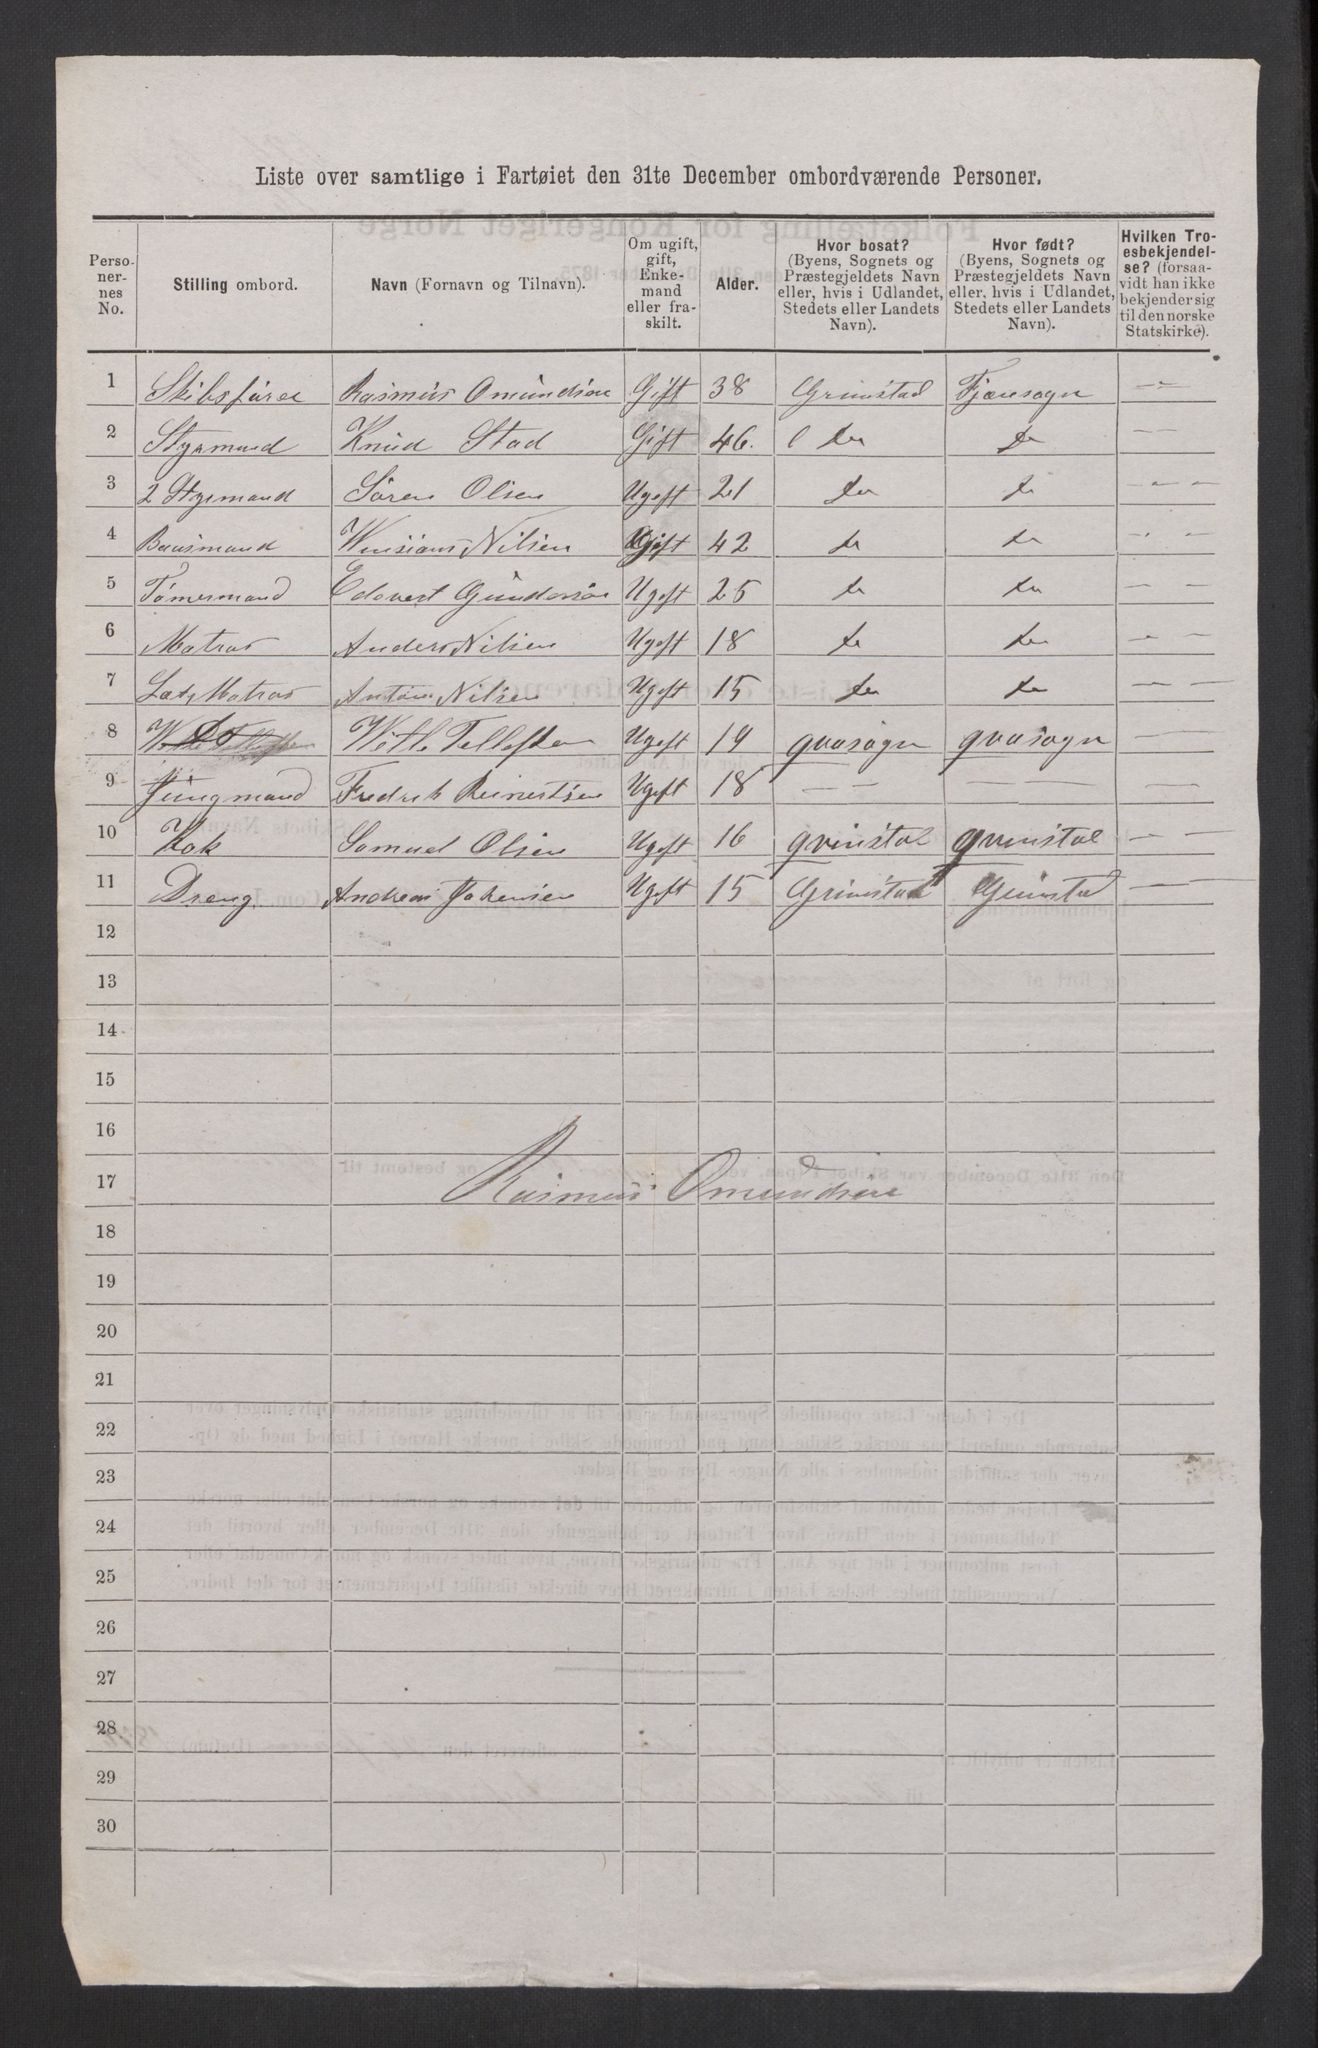 Liste over samtlige i Fartøiet den 31te December ombordværende Personer.
Personernes No. | Stilling ombord. | Navn (Fornavn og Tilnavn). | Om ugift, gift, Enkemand eller fraskilt. | Alder. | Hvor bosat? (Byens, Sognets og Præstegjeldets Navn eller, hvis i Udlandet, Stedets eller Landets Navn). | Hvor født? (Byens, Sognets og Præstegjeldets Navn eller, hvis i Udlandet, Stedets eller Landets Navn). | Hvilken Troesbekjendelse? (forsaavidt han ikke bekjender sig til den norske Statskirke).
1 Skibsförer Rasmus Omundsen Gift 38 Grimstad Fjæresogn — —
2 Styrmand Knud Stad Gift 46. do do — —
3 2 Styrmand Sören Olsen Ugift 21 do do — — —
4 Baasmand Nilsen Gift 42 do do — —
5 Tömermand Edevert Gundersen Ugift 25 do do — —
6 Matros Anders Nilsen Ugift 18 do do — —
7 Letmatros Anton Nilsen Ugift 15 do do — —
8 Tellefsen Ugift 19 — —
9 Jungmand Fredrik Reinertsen Ugift 18 — — — — — —
10 Kok Samuel Olsen Ugift 16 grimstad grimstad — —
11 Dreng Andreas Ugift 15 Grimstad Grimstad — —
12
13
14
15
16
17 Rasmus Omundsen
18
19
20
21
22
23
24
25
26
27
28
29
30